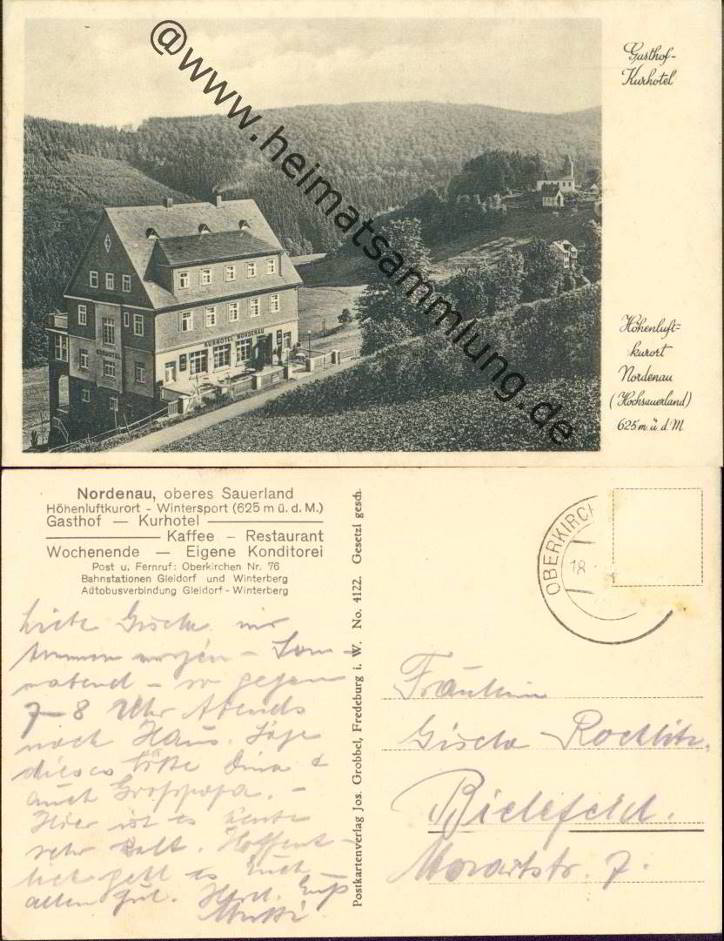 @www.heimatsammlung.de
Gasthof-
Kurhotel
KURHOTEL NORDENAU
KURHOTEL
Höhenluft-
kurort
Nordenau
(Hochsauerland)
625 m. ü. d. M
Nordenau, oberes Sauerland
Höhenluftkurort - Wintersport (625 m ü. d. M.)
Gasthof — Kurhotel
Kaffee – Restaurant
Wochenende — Eigene Konditorei
Post u. Fernruf: Oberkirchen Nr. 76
Bahnstationen Gleidorf und Winterberg
Autobusverbindung Gleidorf - Winterberg
Liebe Gisela wir
kommen morgen – Sonn-
abend – so gegen
7–8 Uhr Abends
nach Haus. Sage
dieses bitte &
auch Grosspapa. –
Hier ist es heute
sehr kalt. Hoffent-
lich geht es Euch
allen gut. Herzl.
Mutti
Postkartenverlag Jos. Grobbel, Fredeburg i. W. No. 4122. Gesetzl gesch.
OBERKIRCH
18
Fräulein
Gisela
Bielefeld.
Mozartstr. 7.